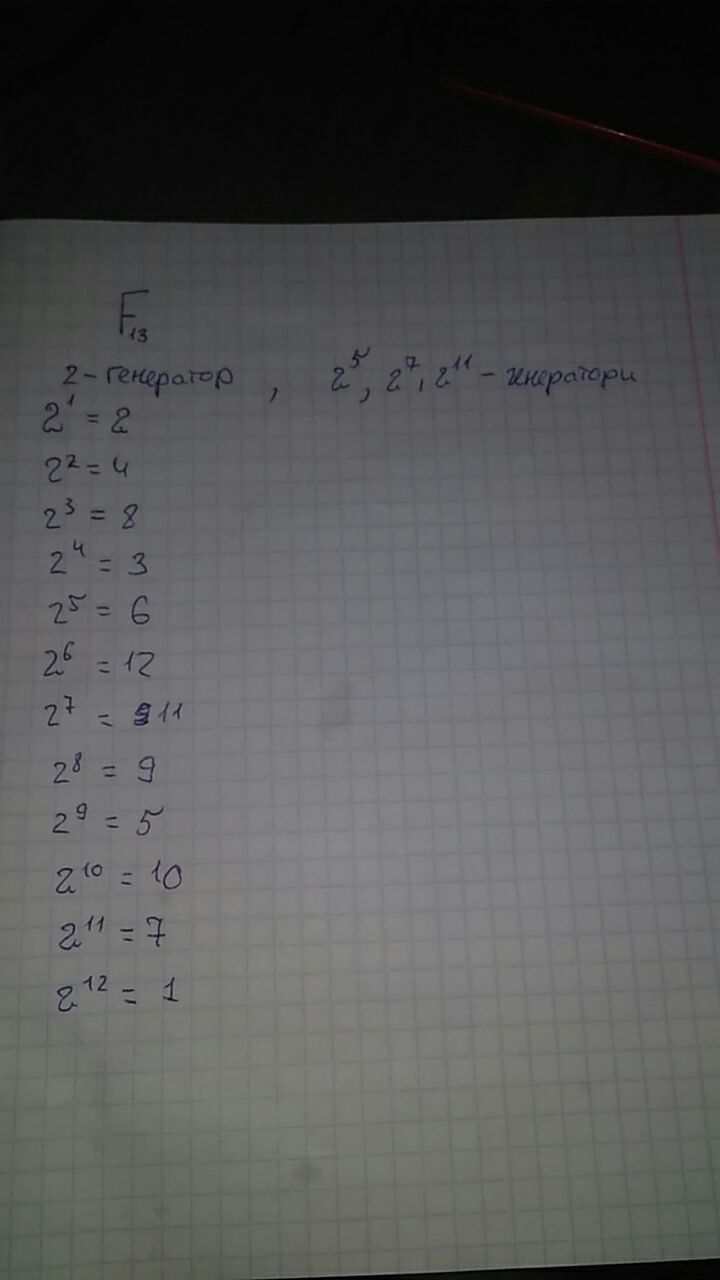 F₁₃
2-генератор , 2⁵, 2⁷, 2¹¹ - генератори
2¹ = 2
2² = 4
2³ = 8
2⁴ = 3
2⁵ = 6
2⁶ = 12
2⁷ = 11
2⁸ = 9
2⁹ = 5
2¹⁰ = 10
2¹¹ = 7
2¹² = 1